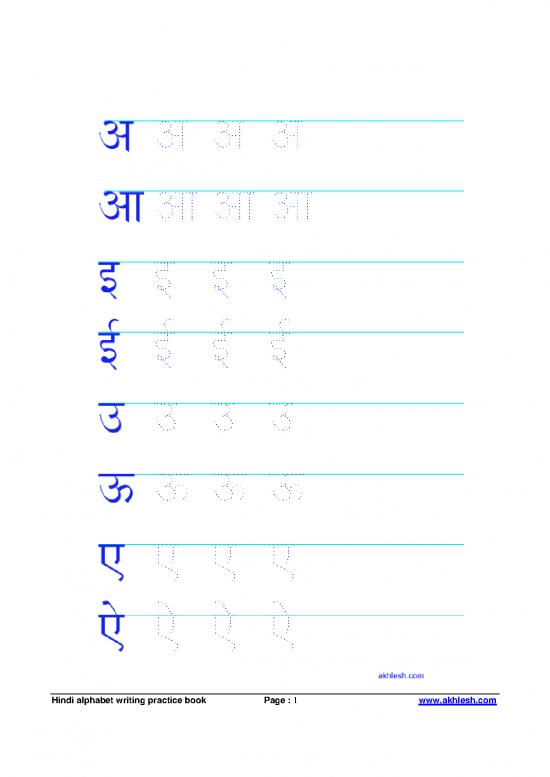 अ अ अ अ
आ आ आ आ
इ इ इ इ
ई ई ई ई
उ उ उ उ
ऊ ऊ ऊ ऊ
ए ए ए ए
ऐ ऐ ऐ ऐ
akhlesh.com
Hindi alphabet writing practice book Page : 1 www.akhlesh.com